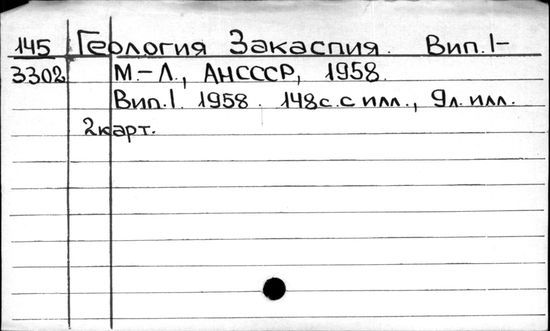 145 Геология Закаспия. Вип. I-
3302 М.-Л., АНСССР, 1958.
Вип. I. 1958. 148с. с илл., 9л. илл.
2карт.